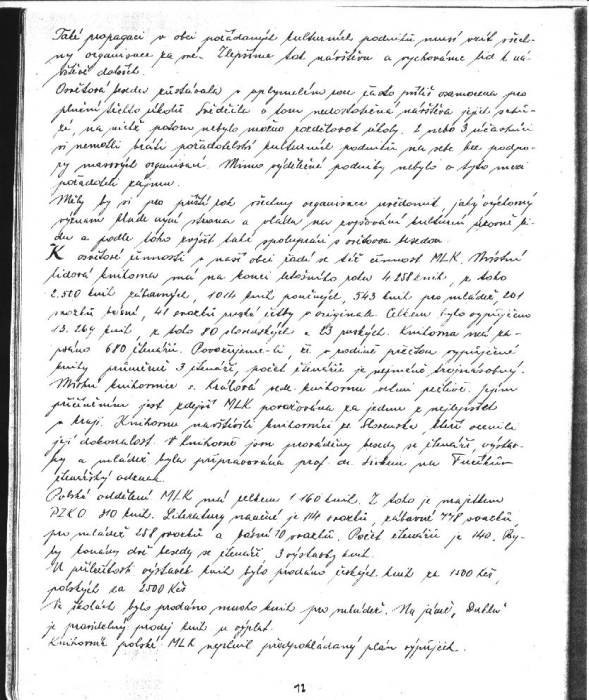 Také propagaci v obci pořádaných kulturních podniků musí vzít všech-
ny organizace za své. Zlepšíme tak návštěvu a vychováme lid k ná-
vštěvě dalších.
Osvětová beseda zůstávala v uplynulém roce často příliš osamocena pro
plnění těchto úkolů. Svědčila o tom nedostatečná návštěva jejích schů-
zí, na nichž potom nebylo možno rozdělovat úkoly. 2 nebo 3 účastníci
si nemohli bráti pořadatelství kulturních podniků na sebe bez podpo-
ry masových organisací. Mimo výdělečné podniky nebylo o tyto mezi
pořadateli zájmu.
Měly by si pro příští rok všechny organisace uvědomit, jaký výslovný
význam klade nyní strana a vláda na zvyšování kulturní úrovně li-
du a podle toho zvýšit také spolupráci s osvětovou besedou.
K osvětové činnosti v naší obci řadí se též činnost MLK. Místní
lidová knihovna má na konci letošního roku 4 258 knih, z toho
2.520 knih zábavných, 1014 knih poučných, 543 knih pro mládež, 201
svazků básní, 41 svazků ruské četby v originale. Celkem bylo vypůjčeno
13.264 knih, z toho 80 slovenských a 23 ruských. Knihovna má za-
psáno 680 čtenářů. Považujeme-li, že v rodině přečtou vypůjčené
knihy průměrně 3 čtenáři, počet čtenářů je nejméně trojnásobný.
Místní knihovnice s. Králová vede knihovnu velmi pečlivě. Jejím
přičiněním jest zdejší MLK považována za jednu z nejlepších
v kraji. Knihovnu navštívili knihovníci ze Slovenska, kteří ocenili
její dokonalost. V knihovně jsou prováděny besedy se čtenáři, výstav-
ky a mládež byla připravována prof. dr. na Fučíkův
čtenářský odznak.
Polské oddělení MLK má celkem 1 160 knih. Z toho je majetkem
PZKO 310 knih. Literatury naučné je 114 svazků, zábavné 778 svazků,
pro mládež 258 svazků a básní 10 svazků. Počet čtenářů je 140. By-
ly konány dvě besedy se čtenáři, 3 výstavky knih.
U příležitosti výstavek knih bylo prodáno českých knih za 1500 Kčs,
polských za 2500 Kčs
Ve školách bylo prodáno mnoho knih pro mládež. Na jámě „Dukla"
je pravidelný prodej knih u výplat.
Knihovna polské MLK nesplnil předpokládaný plán výpůjček.
12